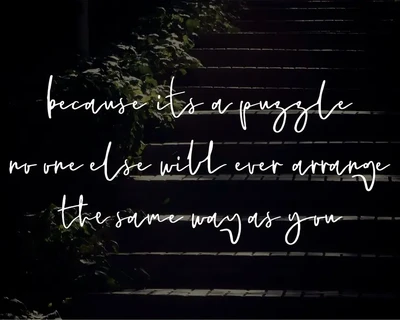 because its a puzzle
no one else will ever arrange
the same way as you